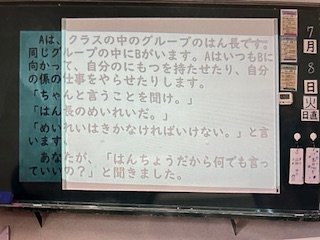 Aは、クラスの中のグループのはん長です。
同じグループの中にBがいます。AはいつもBに
向かって、自分のにもつを持たせたり、自分
の係の仕事をやらせたりします。
「ちゃんと言うことを聞け。」
「はん長のめいれいだ。」
「めいれいはきかなければいけない。」と言
います。
あなたが、「はんちょうだから何でも言っ
ていいの？」と聞きました。
7
月
8
日
火
日直